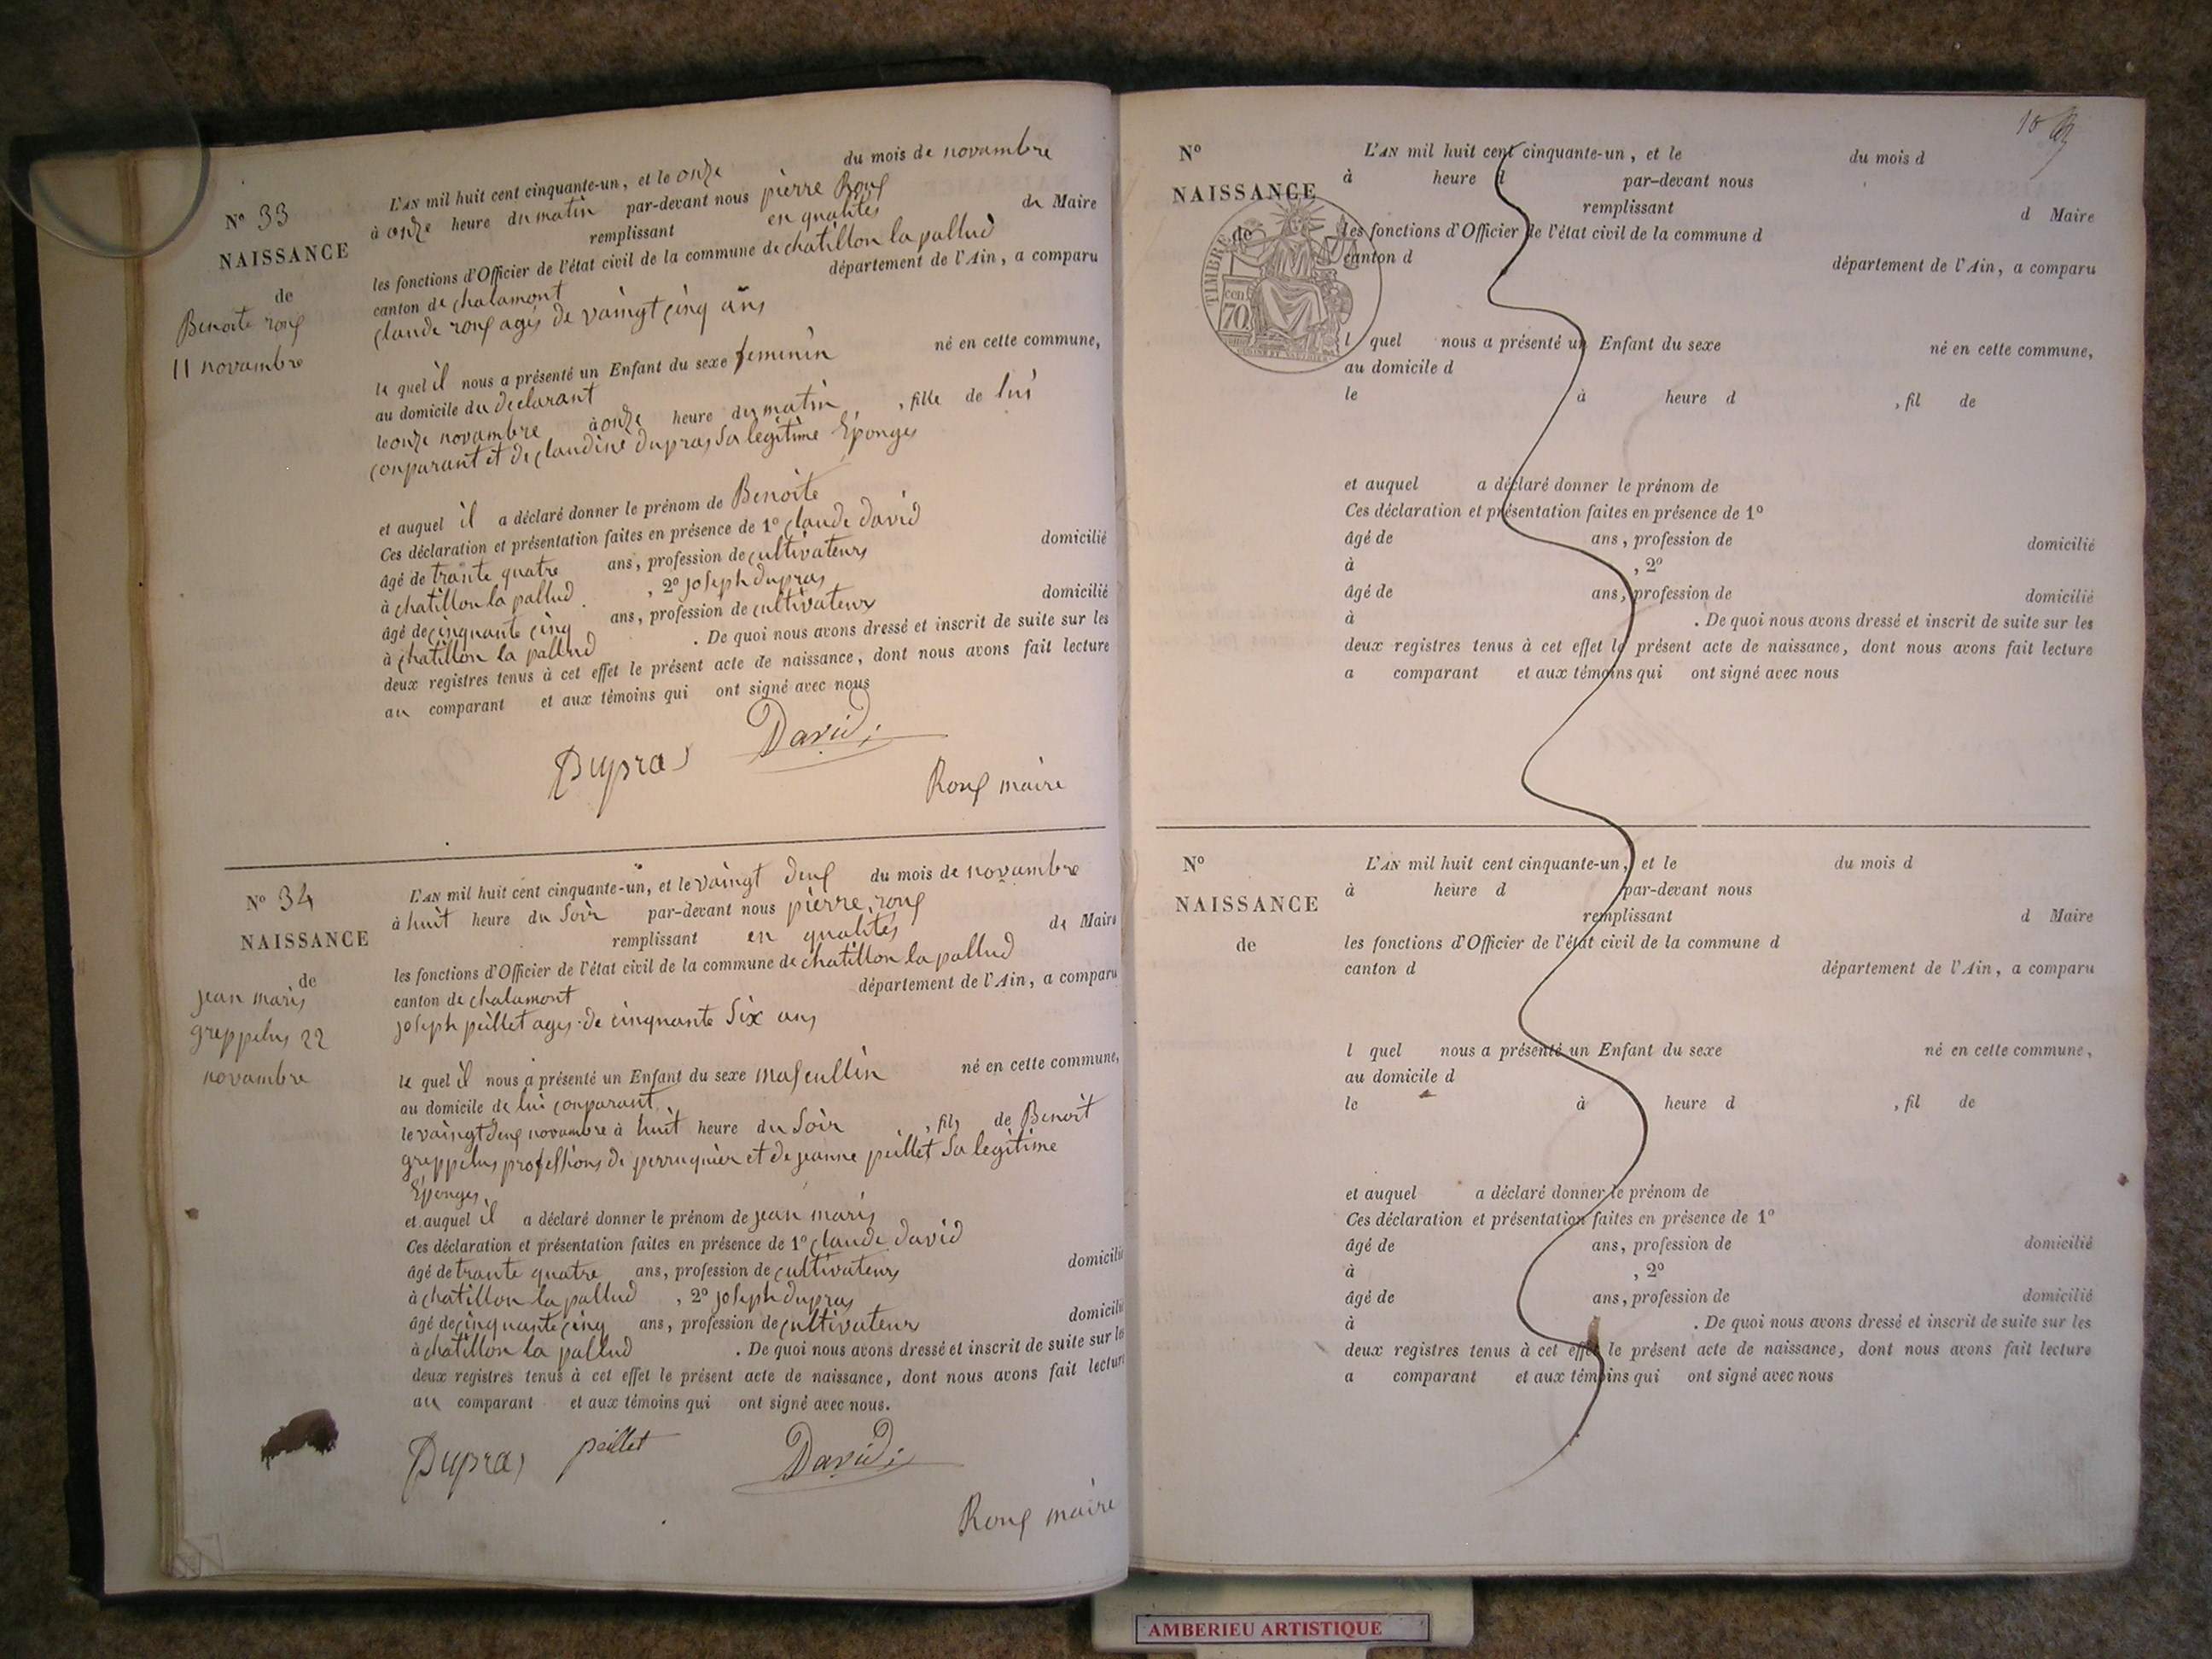 N° 33
NAISSANCE
de
Benoite rouf
11 novembre
L'AN mil huit cent cinquante-un, et le onze du mois de novambre
à onze heure du matin par-devant nous pierre Rouf
remplissant en qualités de Maire
les fonctions d'Officier de l'état civil de la commune de chatillon la pallud
canton de chalamont département de l'Ain, a comparu
claude rouf agés de vaingt cinq ans
le quel il nous a présenté un Enfant du sexe feminin né en cette commune,
au domicile du declarant
le onze novembre à onze heure du matin , fille de lui
conparant et de claudine dupras Sa legitime Eponges
et auquel il a déclaré donner le prénom de Benoite
Ces déclaration et présentation faites en présence de 1° claude david
âgé de trante quatre ans, profession de cultivateurs domicilié
à chatillon la pallud , 2° joseph dupras
âgé de cinquante cinq ans, profession de cultivateur domicilié
à chatillon la pallud . De quoi nous avons dressé et inscrit de suite sur les
deux registres tenus à cet effet le présent acte de naissance, dont nous avons fait lecture
au comparant et aux témoins qui ont signé avec nous
David
Dupras
Rouf maire
N° 34
NAISSANCE
de
jean maris
greppelus 22
novambre
L'AN mil huit cent cinquante-un, et le vaingt deuf du mois de novambre
à huit heure du Soir par-devant nous pierre rouf
remplissant en qualités de Maire
les fonctions d'Officier de l'état civil de la commune de chatillon la pallud
canton de chalamont département de l'Ain, a comparu
joseph peillet ages de cinquante Six ans
le quel il nous a présenté un Enfant du sexe mascullin né en cette commune,
au domicile de lui conparant
le vaingt deuf novambre à huit heure du Soir , fils de Benoit
greppelus professions de perruquier et de jeanne peillet Sa legitime
Eponges
et auquel il a déclaré donner le prénom de jean maris
Ces déclaration et présentation faites en présence de 1° claude david
âgé de trante quatre ans, profession de cultivateurs domicilié
à chatillon la pallud , 2° joseph dupras
âgé de cinquante cinq ans, profession de cultivateur domicilié
à chatillon la pallud . De quoi nous avons dressé et inscrit de suite sur les
deux registres tenus à cet effet le présent acte de naissance, dont nous avons fait lecture
au comparant et aux témoins qui ont signé avec nous.
Dupras peillet David
Rouf maire
10
N°
NAISSANCE
de
TIMBRE
cen
70
L'AN mil huit cent cinquante-un, et le du mois d
à heure d par-devant nous
remplissant d Maire
les fonctions d'Officier de l'état civil de la commune d
canton d département de l'Ain, a comparu
l quel nous a présenté un Enfant du sexe né en cette commune,
au domicile d
le à heure d , fil de
et auquel a déclaré donner le prénom de
Ces déclaration et présentation faites en présence de 1°
âgé de ans, profession de domicilié
à , 2°
âgé de ans, profession de domicilié
à . De quoi nous avons dressé et inscrit de suite sur les
deux registres tenus à cet effet le présent acte de naissance, dont nous avons fait lecture
a comparant et aux témoins qui ont signé avec nous
N°
NAISSANCE
de
L'AN mil huit cent cinquante-un, et le du mois d
à heure d par-devant nous
remplissant d Maire
les fonctions d'Officier de l'état civil de la commune d
canton d département de l'Ain, a comparu
l quel nous a présenté un Enfant du sexe né en cette commune,
au domicile d
le à heure d , fil de
et auquel a déclaré donner le prénom de
Ces déclaration et présentation faites en présence de 1°
âgé de ans, profession de domicilié
à , 2°
âgé de ans, profession de domicilié
à . De quoi nous avons dressé et inscrit de suite sur les
deux registres tenus à cet effet le présent acte de naissance, dont nous avons fait lecture
a comparant et aux témoins qui ont signé avec nous
AMBERIEU ARTISTIQUE